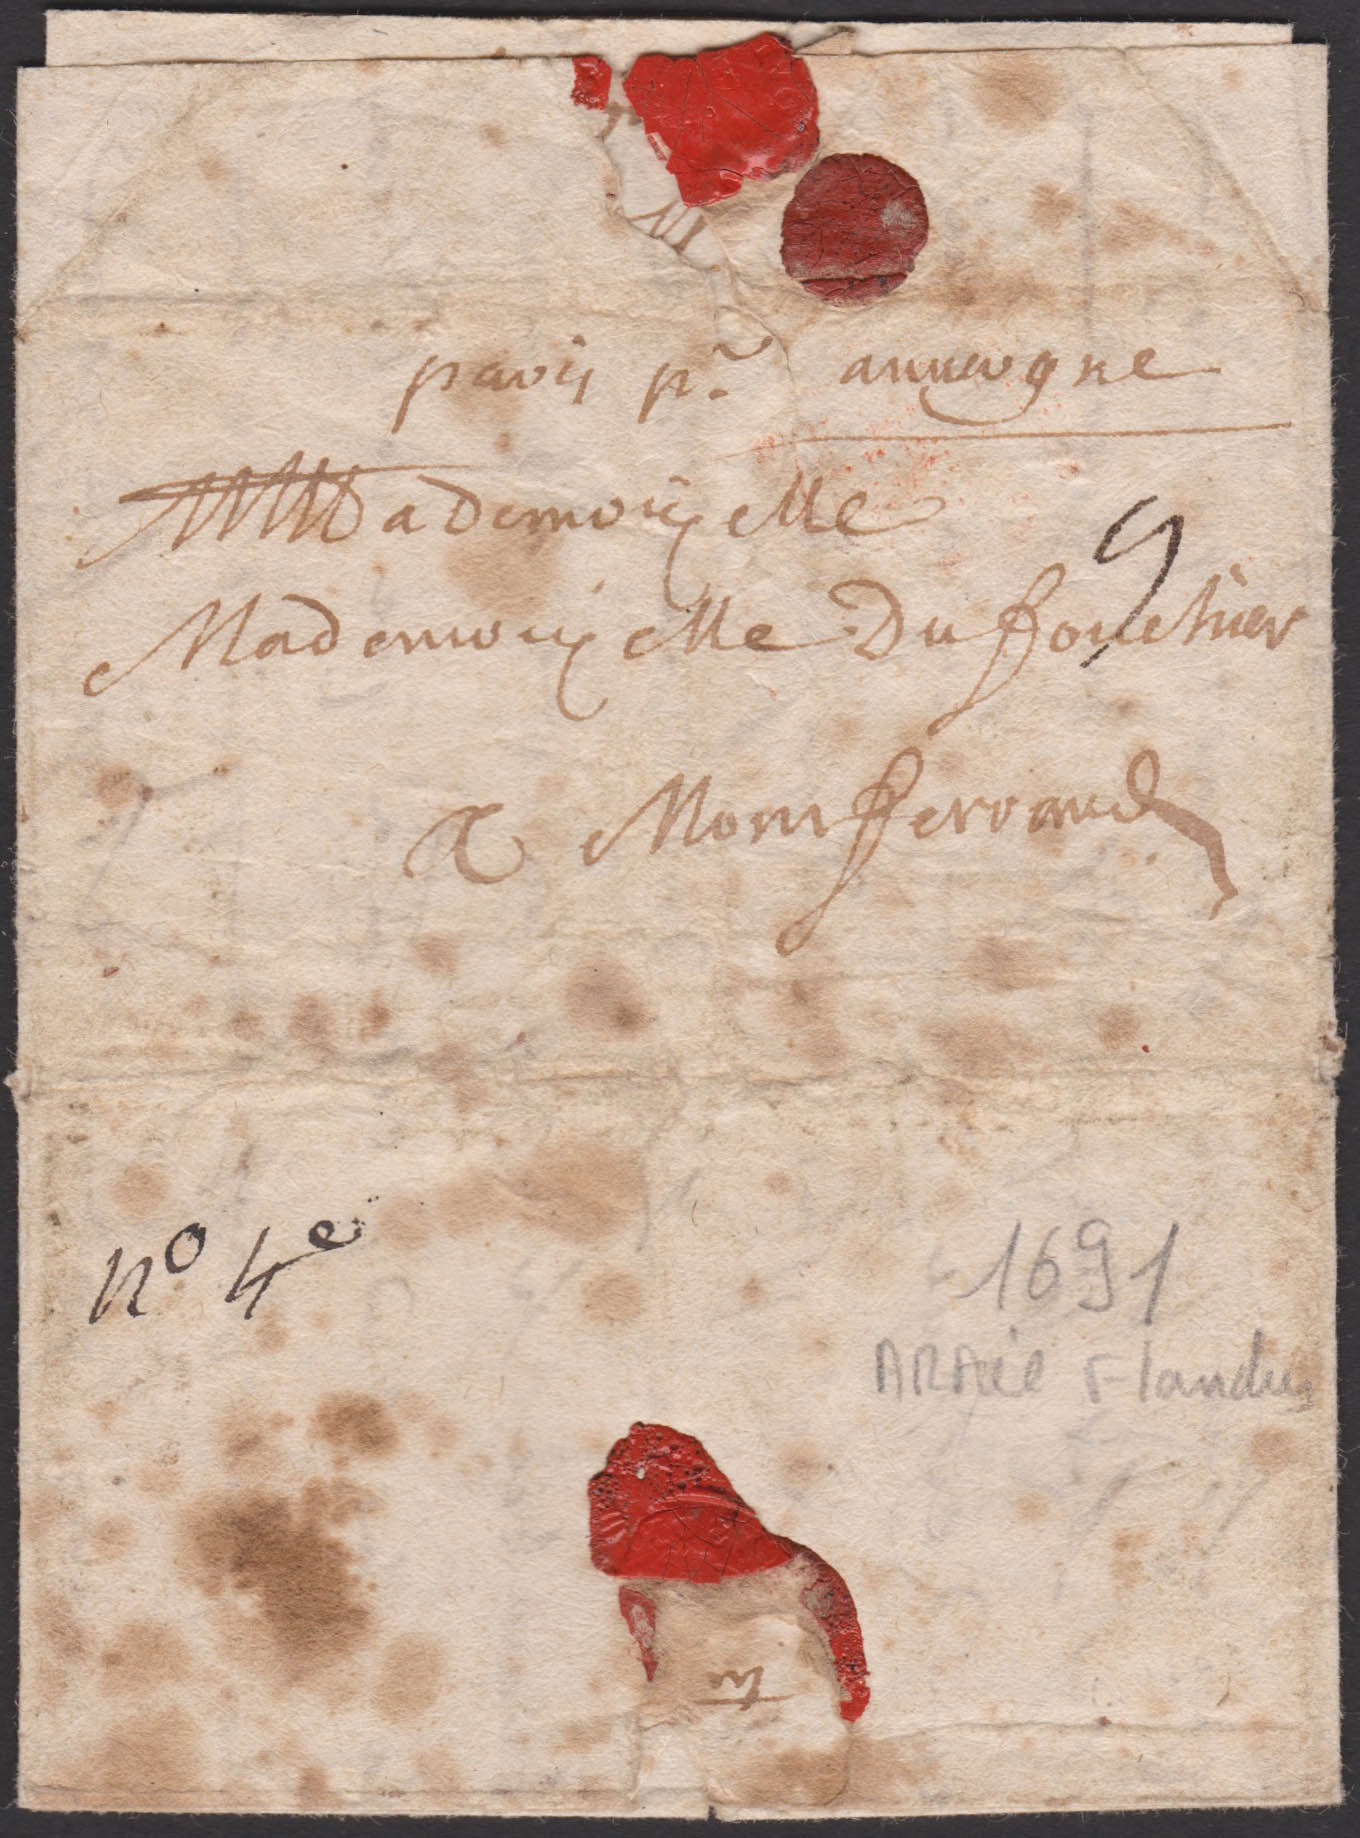 paris pr auvergne
Mademoiselle
9
Mademoiselle Du ffouchier
A Monfferrand
no 4e
1691
ARMée Flandres